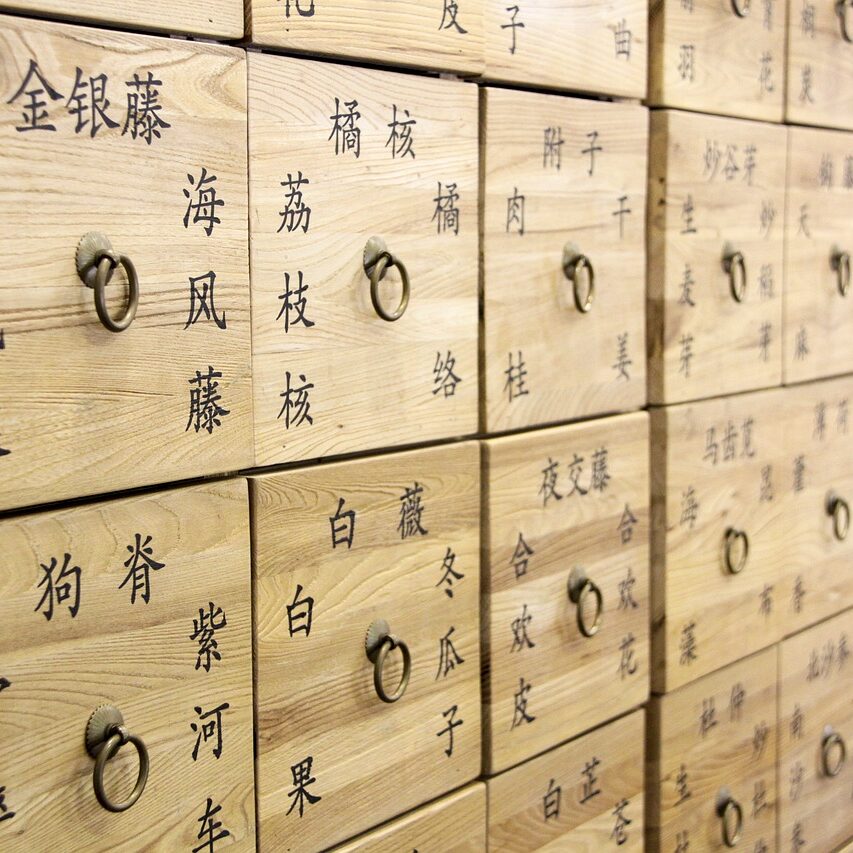 花
皮
子
曲
羽
花
炭
金银藤
海风藤
橘核
荔枝核
橘络
附子
肉桂
干姜
炒谷芽
生麦芽
炒稻芽
天麻
狗脊
紫河车
白薇
白果
冬瓜子
夜交藤
合欢皮
合欢花
马齿苋
海藻
昆布
薄荷
藿香
杜仲
生杜
炒杜
北沙参
南沙
白芷
苍